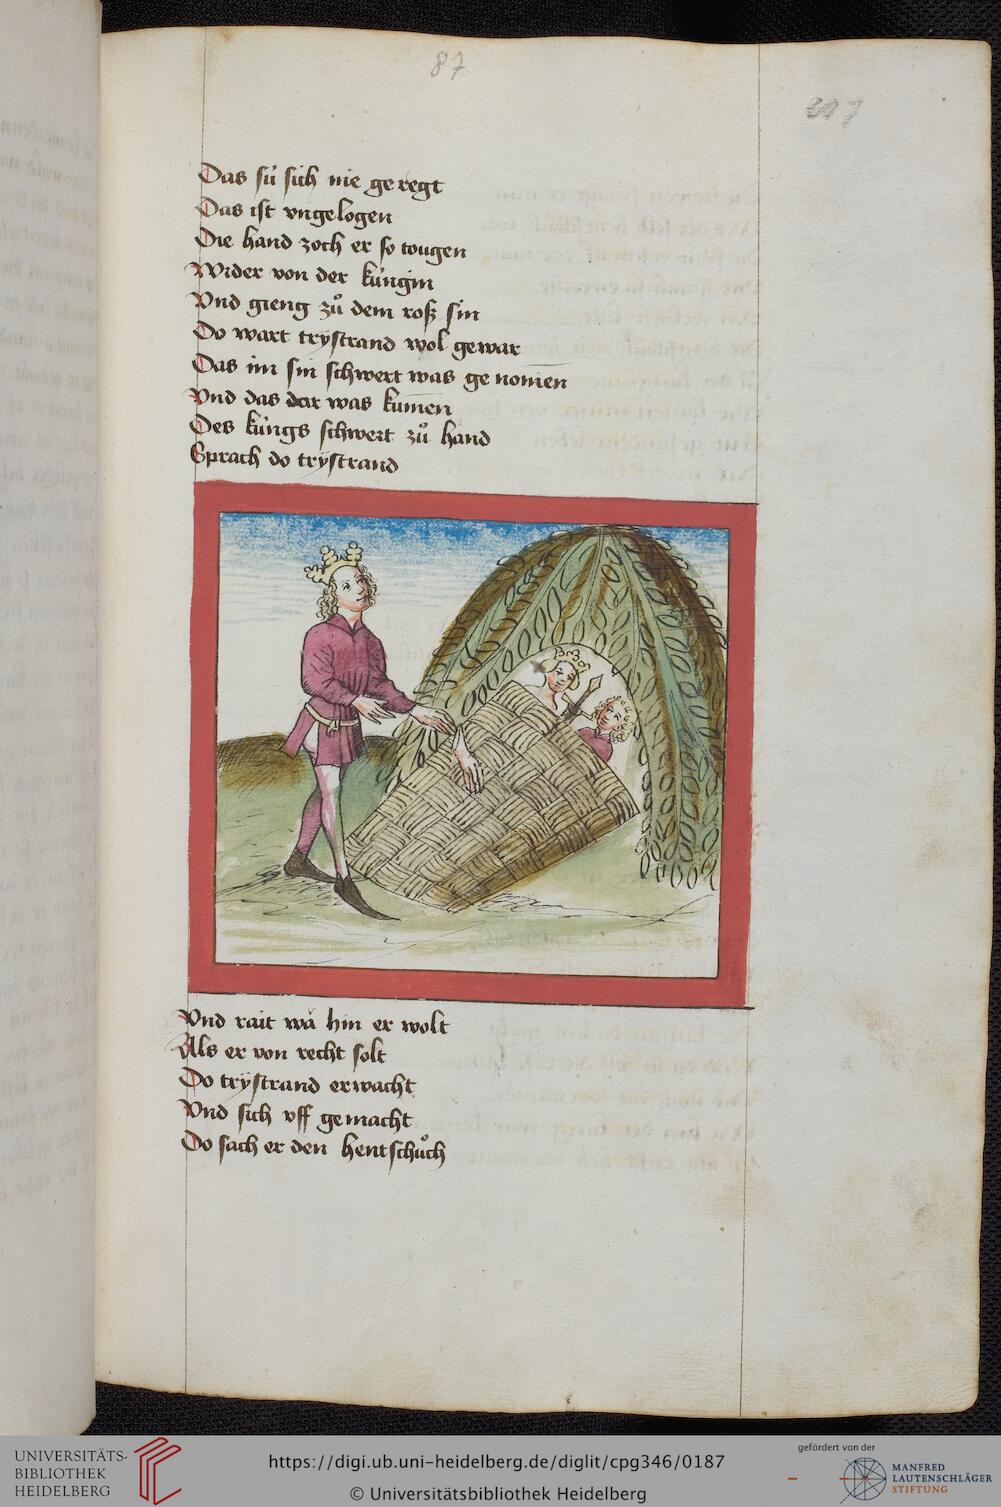 87
Das sú sich nie geregt
Das ist vngelogen
Die hand zoch er so tougen
Wider von der kúngin
Vnd gieng zů dem roß sin
Do wart trÿstrand wol gewar
Das im sin schwert was genomen
Vnd das dar was kumen
Des kúngs schwert zů hand
Sprach do trÿstrand
Vnd rait wa hin er wolt
Als er von recht solt
Do trÿstrand erwacht
Vnd sich vff gemacht
Do sach er den hentschůch
UNIVERSITÄTS-
BIBLIOTHEK
HEIDELBERG
https://digi.ub.uni-heidelberg.de/diglit/cpg346/0187
© Universitätsbibliothek Heidelberg
gefördert von der
MANFRED
LAUTENSCHLÄGER
STIFTUNG